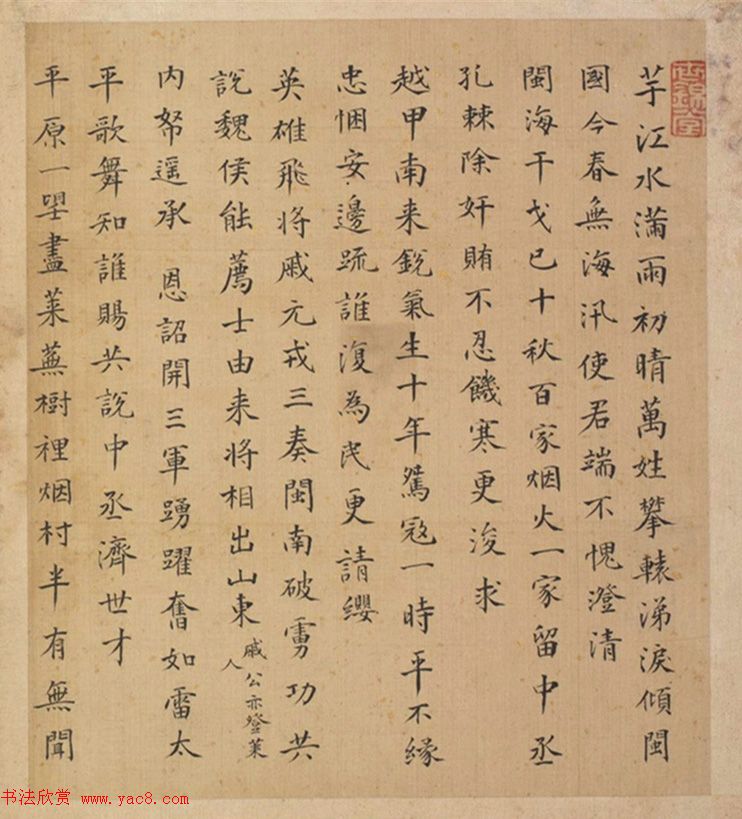 芋江水滿雨初晴萬姓攀轅涕淚傾閩
國今春無海汛使君端不愧澄清
閩海干戈已十秋百家烟火一家留中丞
孔棘除奸賄不忍饑寒更浚求
越甲南来銳氣生十年鴛寇一時平不緣
忠悃安邊疏誰復為民更請纓
英雄飛將戚元戎三奏閩南破虜功共
說魏侯能薦士由来將相出山東戚公亦登莱人
内帑遥承恩詔開三軍踴躍奮如雷太
平歌舞知誰賜共說中丞濟世才
平原一望盡莱蕪樹裡烟村半有無聞
书法欣赏 www.yac8.com